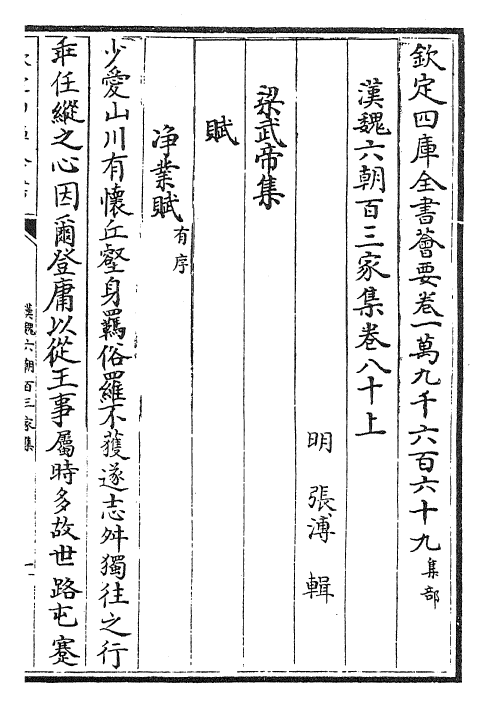 欽定四庫全書薈要卷一萬九千六百六十九集部
漢魏六朝百三家集卷八十上
明 張溥 輯
梁武帝集
賦
淨業賦有序
少愛山川有懷丘壑身羈俗羅不獲遂志舛獨往之行
乖任縱之心因爾登庸以從王事屬時多故世路屯蹇
漢魏六朝百三家集
一